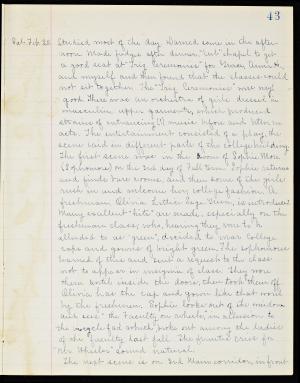 43
Sat. Feb. 20. Studied most of the day. Danced some in the after-
noon. Made fudge after dinner, "cut" chapel to get
a good seat at "Trig Ceremonies" for Grace,
and myself and then found that the classes could
not sit together. The "Trig Ceremonies" were very
good. There was an orchestra of girls dressed in
masculine upper garments, which produced
strains of entrancing (?) music before and between
acts. The entertainment consisted of a play, the
scene laid in different parts of the college building.
The first scene was in the room of Sophie More
(Sophomore) on the 2nd day of Fall term. Sophie returns
and finds two rooms, and then some of the girls
rush in and welcome her, college fashion. A
freshman, Olivia Lettuce Page Green, is introduced.
Many excellent "hits" are made, especially on the
freshman class, who, hearing they were to be
alluded to as "green", decided to wear college
caps and gowns of bright green. The sophomores
learned of this and sent a request to the class
not to appear in insignia of class. They wore
them until inside the doors, then took them off.
Olivia has the cap and gown like that worn
by the freshmen. Sophie looks out of the window
and sees "the Faculty on wheels", in allusion to
the bicycle fad which broke out among the ladies
of the faculty last fall. The
Wheeler sound natural.
The next scene is on 2nd Main corridor, in front